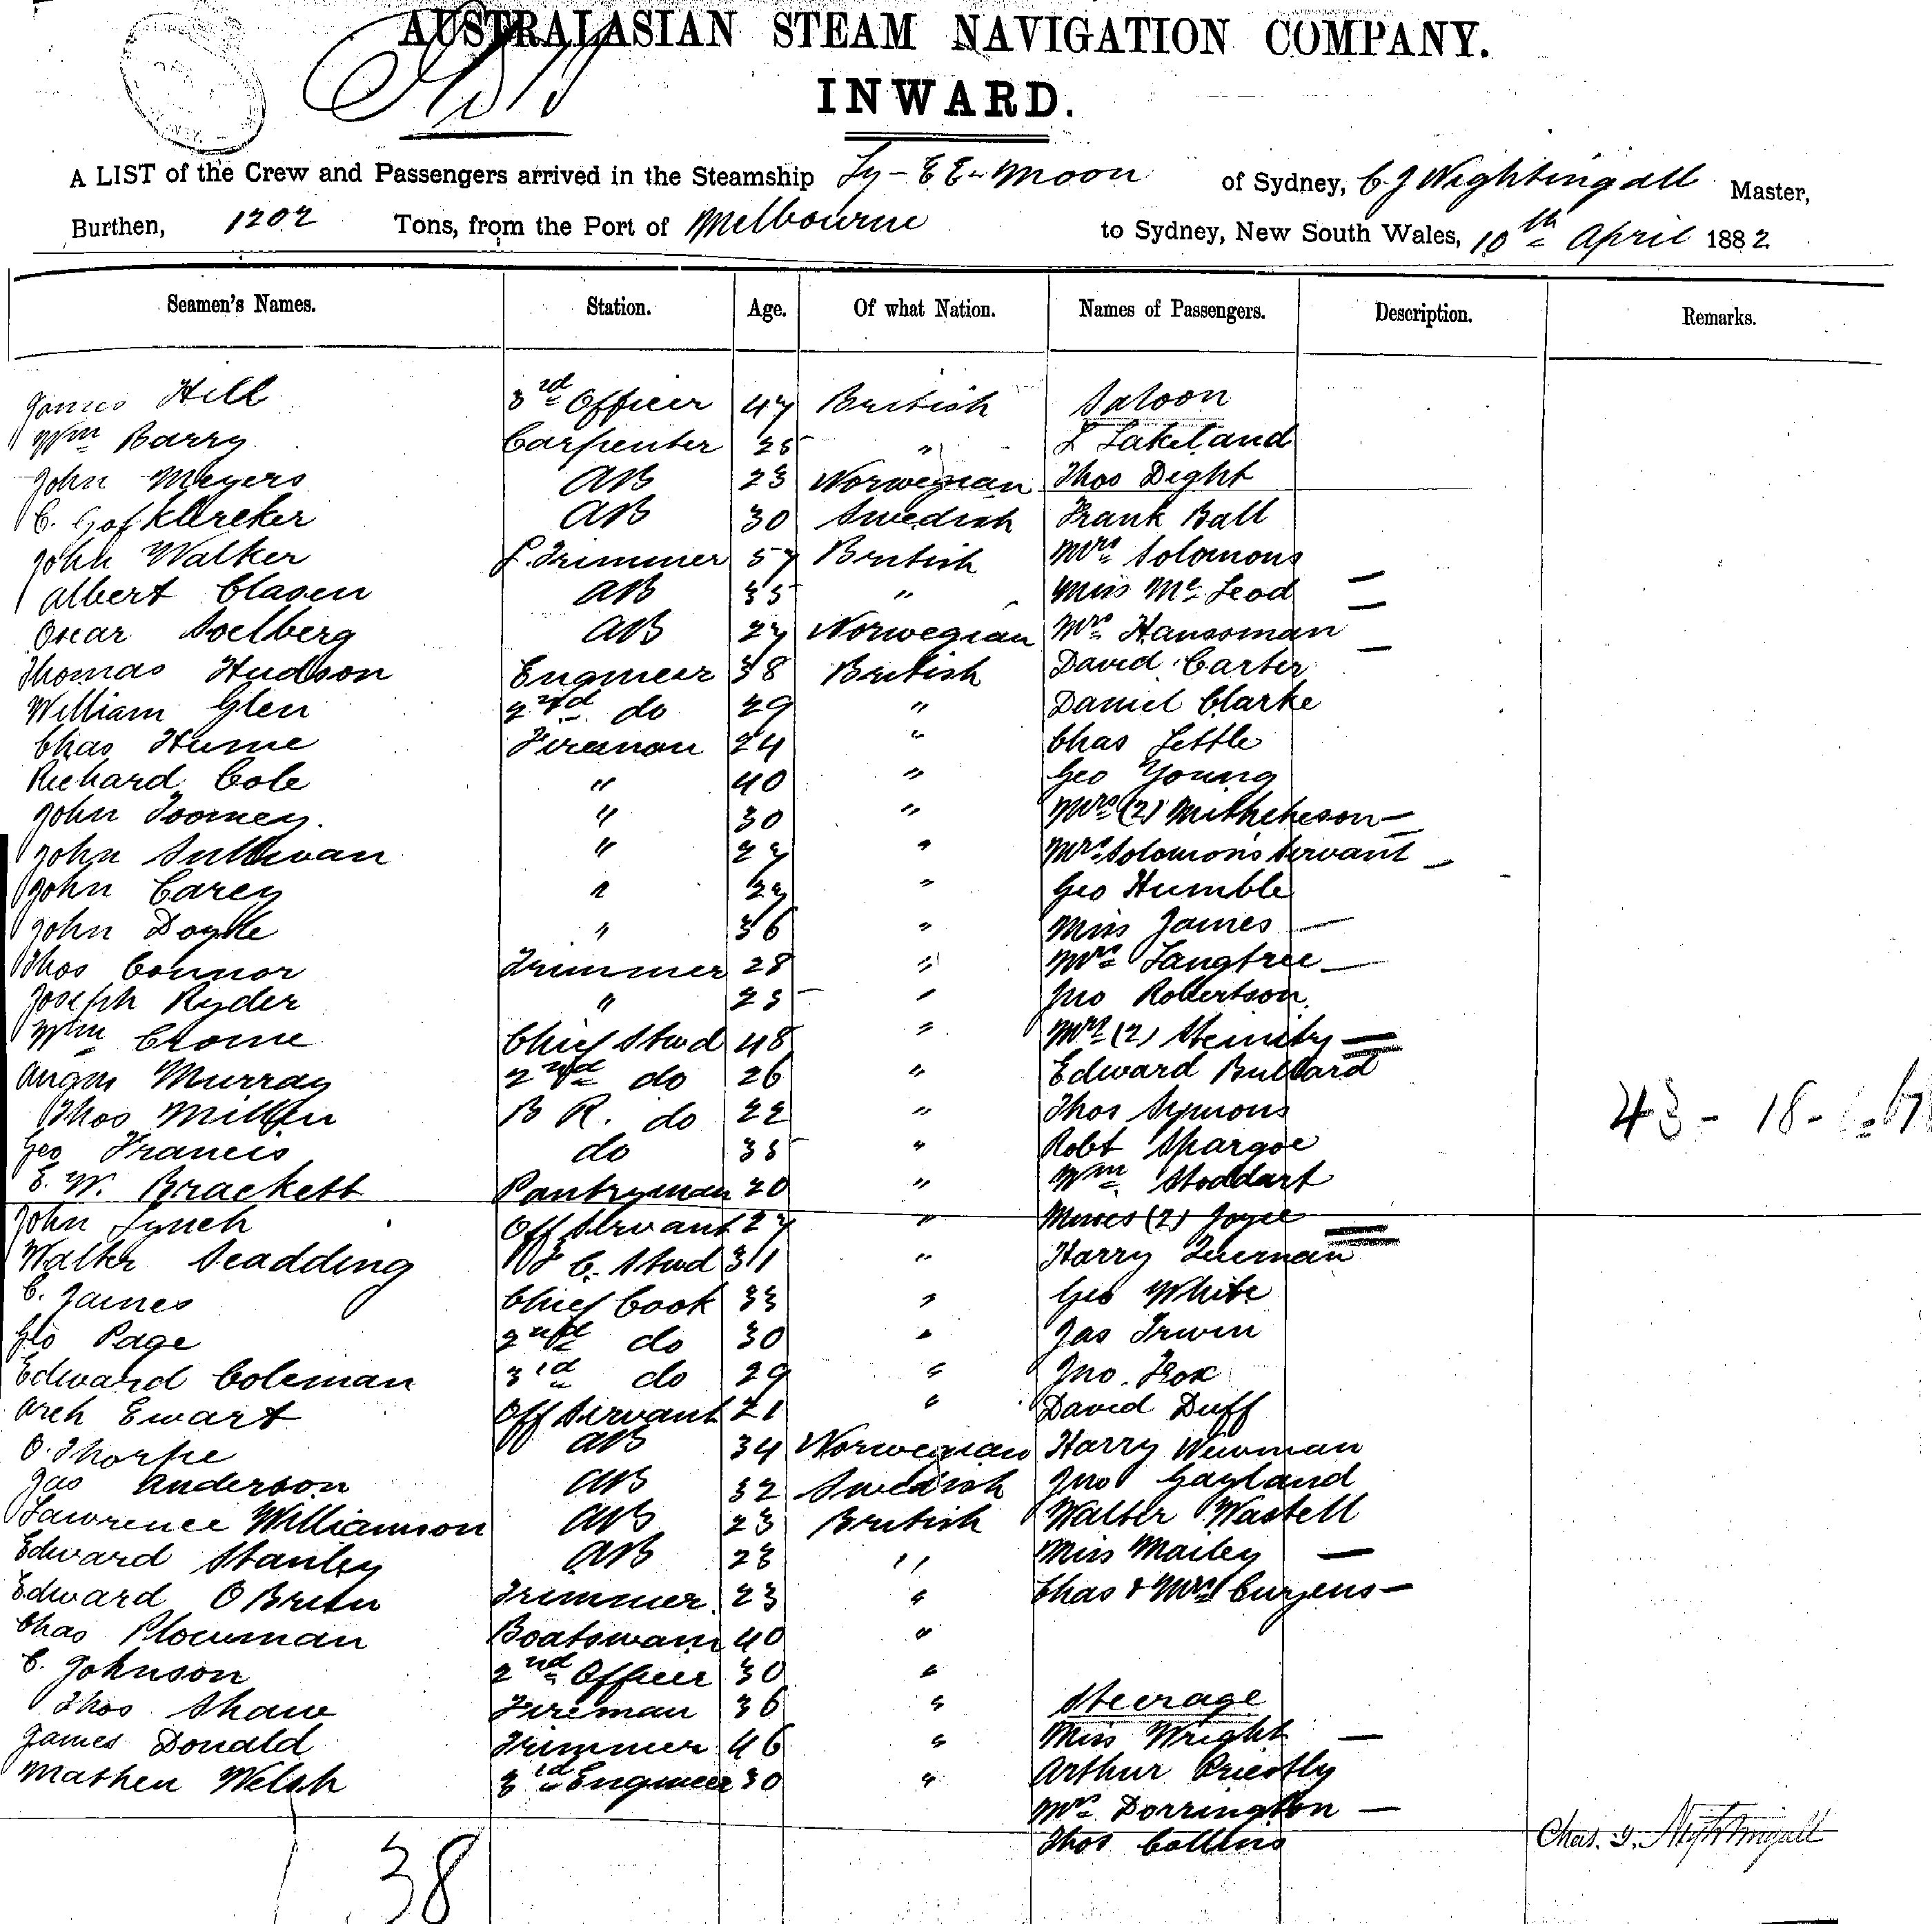 AUSTRALASIAN STEAM NAVIGATION COMPANY.
INWARD.
A LIST of the Crew and Passengers arrived in the Steamship Ly-EE-Moon of Sydney, C. J Nightingall Master,
Burthen, 1202 Tons, from the Port of Melbourne to Sydney, New South Wales, 10th April 1882
Seamen's Names. Station. Age. Of what Nation. Names of Passengers. Description. Remarks.
James Hill 3rd Officer 47 British Saloon
Wm Barry Carpenter 25 " L Lakeland
John Meyers AB 23 Norwegian Thos Dight
C. Klercker AB 30 Swedish Frank Ball
John Walker L. Trimmer 57 British Mrs Solomons
Albert Clasen AB 35 " Miss McLeod —
Oscar Soelberg AB 27 Norwegian Mrs Hanssoman —
Thomas Hudson Engineer 38 British David Carter —
William Glen 2nd do 29 " Daniel Clarke
Chas Hume Fireman 24 " Chas Little
Richard Cole " 40 " Geo Young
John Toomey " 30 " Mrs (2) —
John Sullivan " 27 " Mrs Solomons Servant —
John Carey " " Geo Humble
John Doyle " 36 " Miss James —
Thos Connor Trimmer 28 " Mrs Langtree —
Joseph Ryder " 25 " Jno Robertson
Wm Crome Chief Stwd 48 " Mrs (2) —
Angus Murray 2nd do 26 " Edward Bullard
Thos Millen B R. do 22 " Thos Symons
43 - 18 -
Geo Francis do 35 " Robt Spargoe
E. W. Brackett Pantryman 20 " Wm Stoddart
John Lynch Off Servant 27 " Misses (2) Joyce
Walter Scadding F C. Stwd 31 " Harry
C. James Chief Cook 33 " Geo White
Geo Page 2nd do 30 " Jas Irwin
Edward Coleman 3rd do 29 " Jno. Fox
Arch Ewart Off Servant 21 " David Duff
O. Thorpe AB 34 Norwegian Harry Newman
Jas Anderson AB 32 Swedish Jno Gayland
Lawrence Williamson AB 23 British Walter Wastell
Edward Stanley AB 23 " Miss Mailey —
Edward OBrien Trimmer 23 " Chas & Mrs Curzens —
Chas Plowman Boatswain 40 "
C. Johnson 2nd Officer 30 "
Thos Shaw Fireman 36 " Steerage
James Donald Trimmer 46 " Miss Wright —
Mathew Welsh 3rd Engineer 30 " Arthur Priestly
Mrs Dorrington —
Thos Collins
Chas. J. Nightingall
38